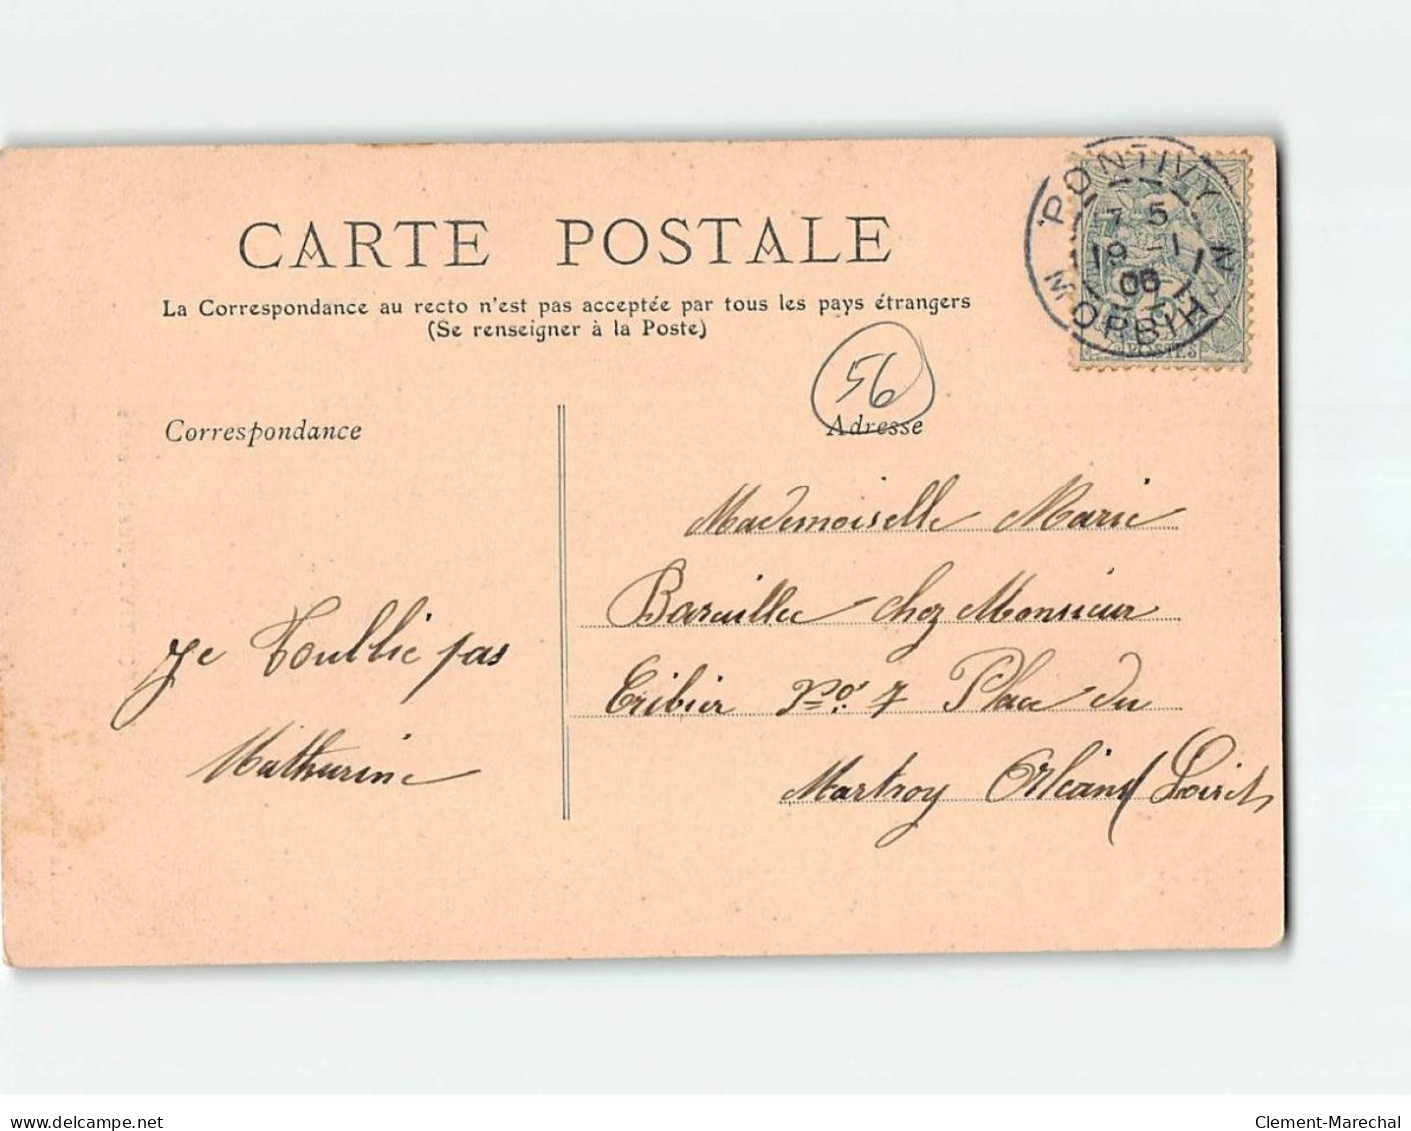 CARTE POSTALE
La Correspondance au recto n'est pas acceptée par tous les pays étrangers
(Se renseigner à la Poste)
PONTIVY
7 5
19 -1
06
MORBIHAN
POSTES
56
Correspondance
Adresse
Je t'oublie pas
Mathurine
Mademoiselle Marie
Baraillee chez Monsieur
Tribier No. 7 Place du
Martroy Orléans (Loiret
www.delcampe.net
Clement-Marechal